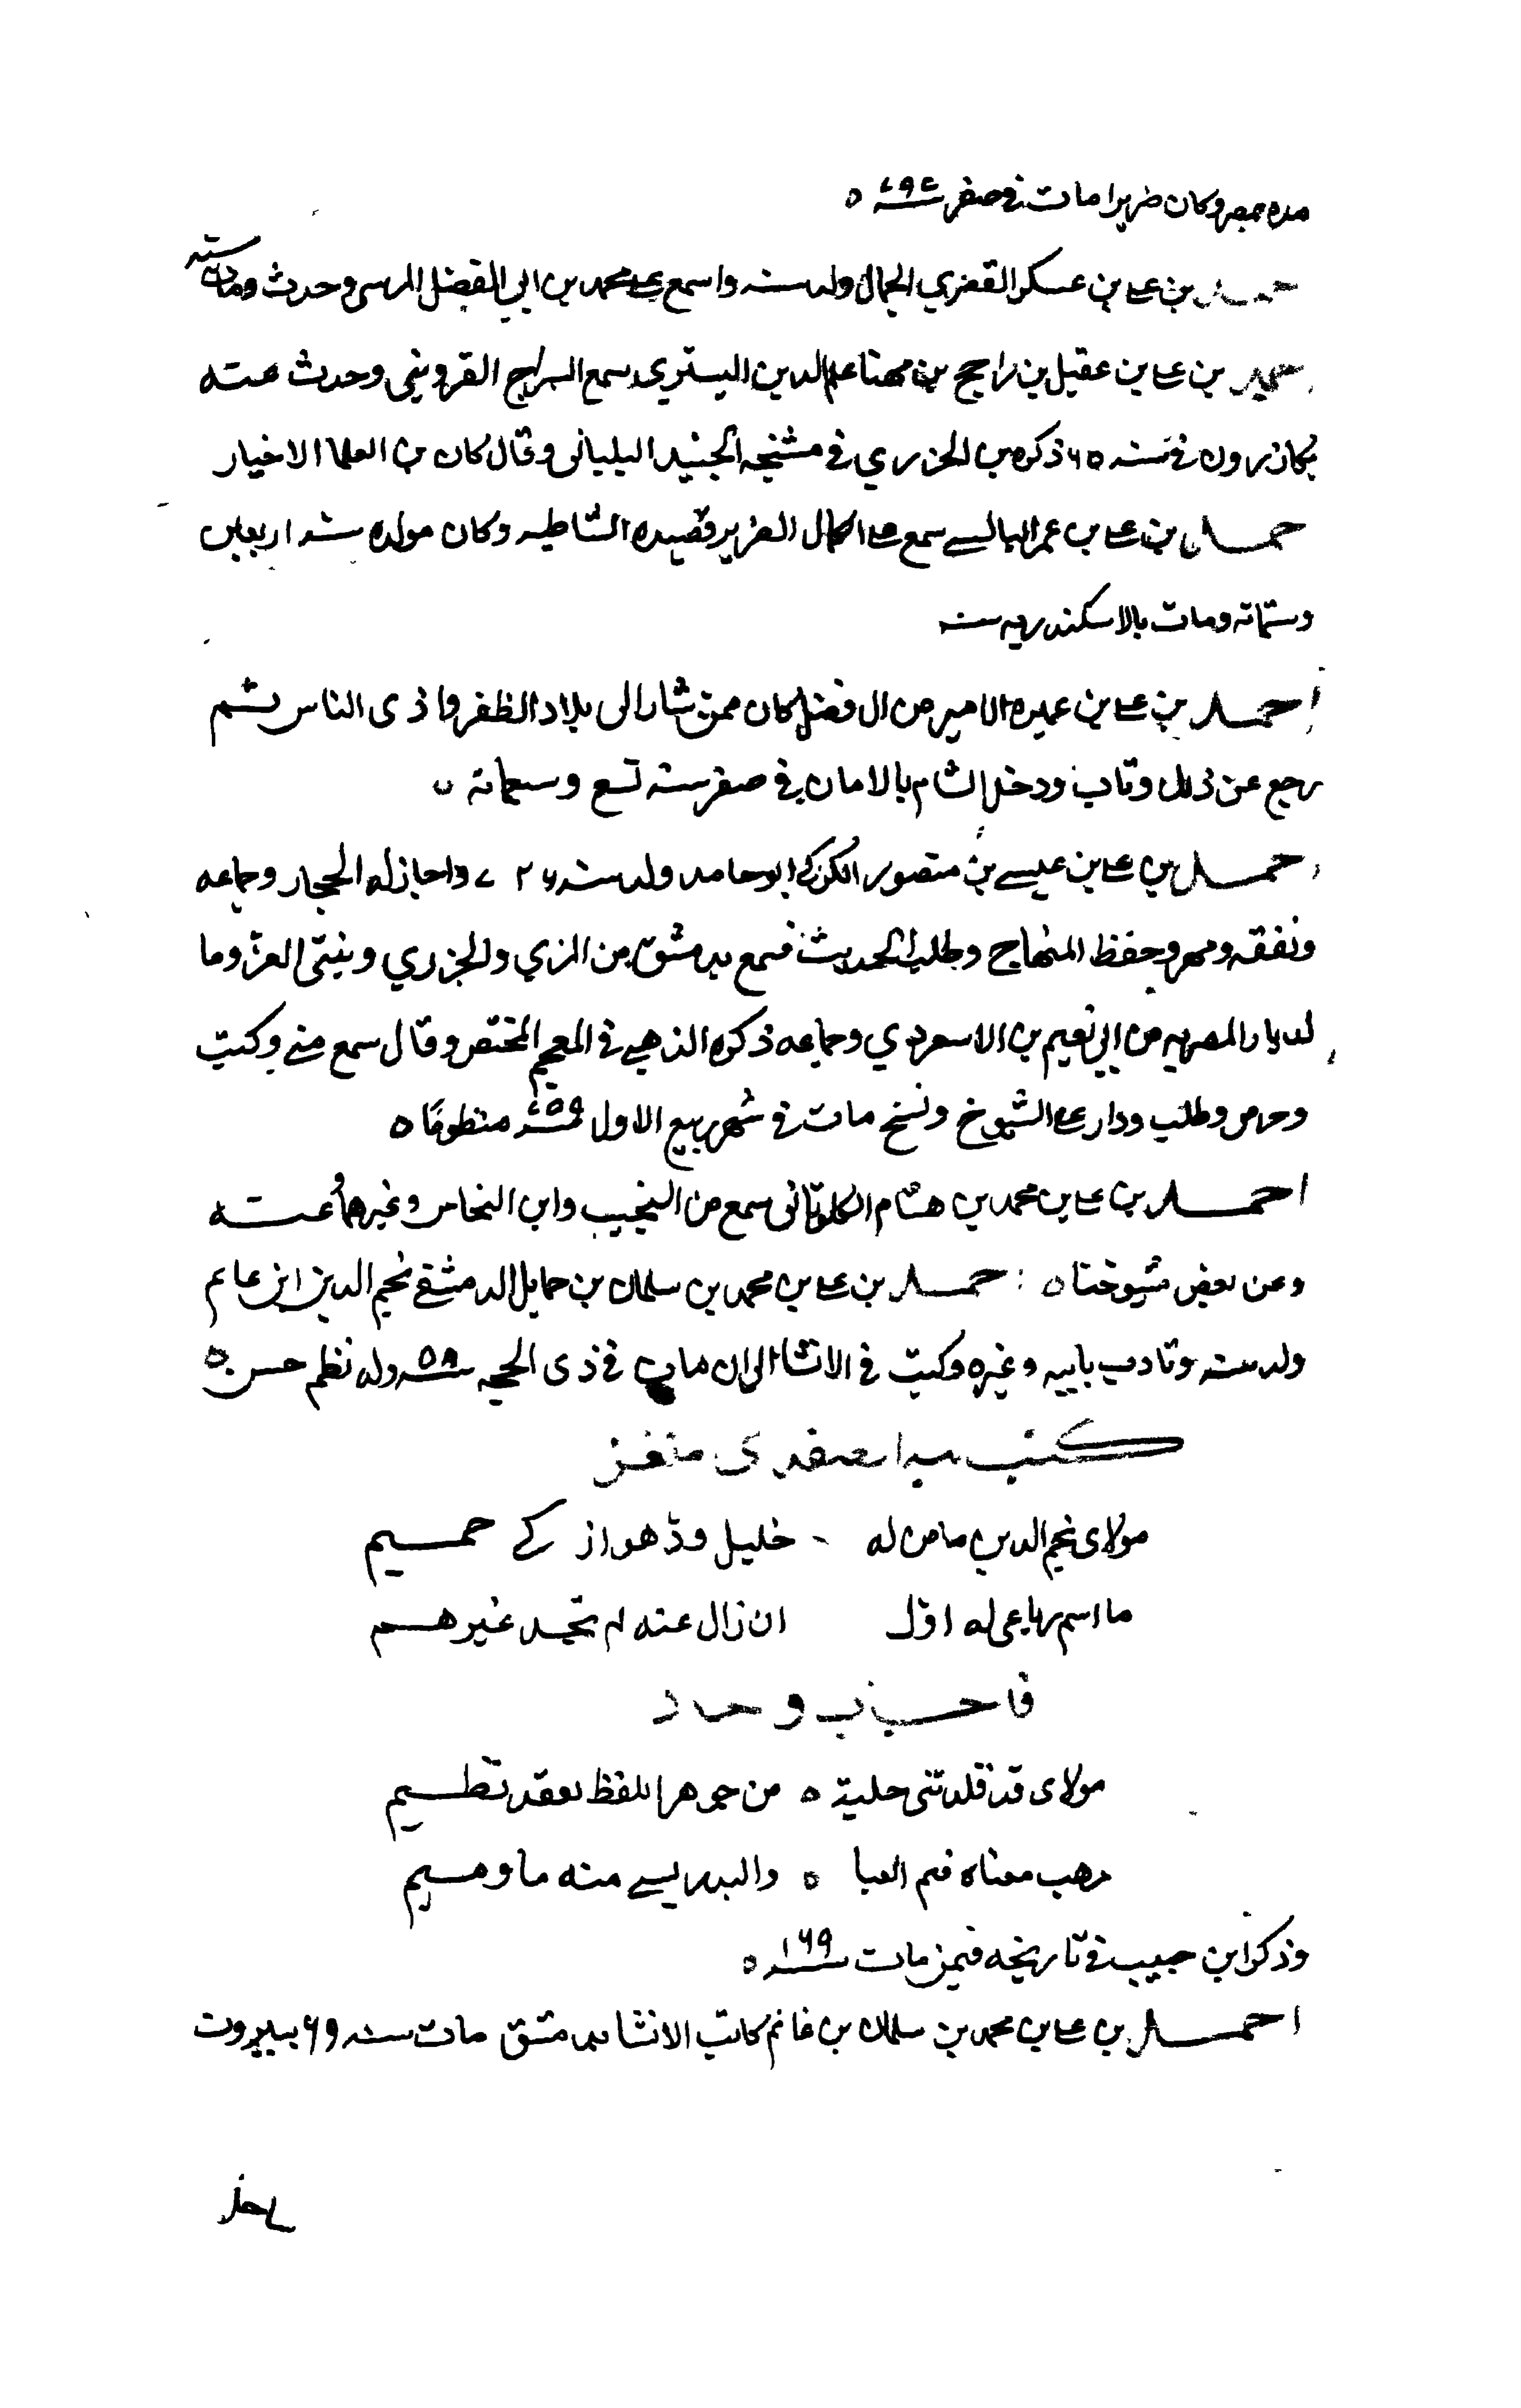 مده بمصر وكان ضريرا مات في صفر سنة ٧٩٤ ه
حمد بن علي بن عسكر القصري الجمال ولد سنه واسمع على محمد بن ابي الفضل المرسي وحدث ومات سنة
حمد بن علي بن عقيل بن راجح بن مهنا علم الدين اليستري سمع السراج القزويني وحدث عنه
بكازرون في سنه ٧٦٥ ذكره بن الجزري في مشيخه الجنيد البلياني وقال كان من العلما الاخيار
حمد بن علي بن عمر البالسي سمع على الكمال الضرير قصيده الشاطبيه وكان مولده سنه اربعين
وستماته ومات بالاسكندريه سنه
احمد بن علي بن عميره الامير من ال فضل كان ممن شار الى بلاد الظفر واذى الناس ثم
رجع عن ذلك وتاب ودخل الشام بالامان في صفر سنه تسع وسبعماته
احمد بن علي بن عيسى بن منصور الكركي ابو حامد ولد سنه ٧٢٦ واجاز له الحجار وجماعه
وتفقه ومهر وحفظ المنهاج وطلب الحديث فسمع بدمشق من المزي والجزري وبنتى العز وما
لديار المصريه من ابي نعيم بن الاسعردي وجماعه ذكره الذهبي في المعجم المختص وقال سمع مني وكتب
وحرص وطلب ودار على الشيوخ ونسخ مات في شهر ربيع الاول سنة ٧٥٩
احمد بن علي بن محمد بن هشام الكلوتاتى سمع من النجيب وابن النحاس وغيرهما عنه
وعن بعض شيوخنا ه حمد بن علي بن محمد بن سلمان بن حمايل الدمشقي نجم الدين ابن غانم
ولد سنه وتادب بابيه وغيره وكتب في الانشا الى ان مات في ذى الحجه سنه ٥٨ وله نظم حسن ه
كتب الصفدى
مولاى نجم الدين ما من له خليل ود هو از كي حميم
ما اسم رباعى له اول ان زال عنه لم تجد غير هم
فاجاب وجاد
مولاى قد قلدتنى حلية ه من جوهر اللفظ بعقد نظيم
معناه ه والبدر
وذكر ابن حبيب في تاريخه فيمن مات سنه ١٦٩ ه
احمد بن علي بن محمد بن سلمان بن غانم كاتب الانشا بدمشق مات سنه ٦٩ ببيروت